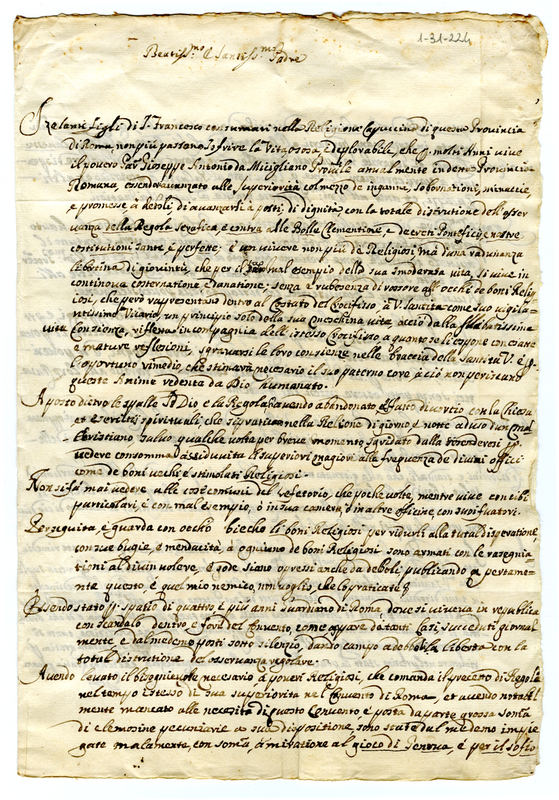 1-31-224
Beatiss.mo e Santiss.mo Padre
Zelanti figli di S. Francesco consumati nella Religione Capuccina di questa Provincia
di Roma non più possono soffrire la vitagosa e deplorabile, che molti Anni vive
il povero Giuseppe Antonio da Provinciale atualmente in detta Provincia
Romana, essendo avanzato alle superiorità col mezzo de inganni, sobornationi, minaccie
e promesse a deboli di avanzarli a posti di dignità con la totale distrutione dell'osser
vanza della Regola Serafica, e contra alle Bolle Clementine, e decreti Pontificij e nostre
costitutioni sante, e perfete; è un vivere non più da Religiosi ma d'una radunanza
libertina di gioventù, che per il mal esempio della sua smoderata vita, si vive in
continova costernatione, e danatione, senza erubescenza di rossore all'occhi de boni Relig
iosi, che però rapresentano dentro al Costato del Crocifisso, à V. Santità come suo vigila
ntissimo Vicario, un principio solo della sua vita, acciò dalla
vita consienza, rifletta in compagnia dell'istesso Crocifisso a quanto se li espone con
e mature riflessioni, sgravarsi le loro consienze nelle braccia della Santità V. e
l'oportuno rimedio, che stimarà necessario il suo paterno core, à ciò non periscano
queste Anime redente da Dio humanato.
A posto dietro le spalle Dio e la Regola avendo abandonato, e fatto divortio con la Chiesa
et esercitij spirituali, che si praticano nella Religione di giorno, e notte ad uso d'un mal
Christiano salvo qualche volta per breve momento
vedere consomma assiduità i superiori magiori alle frequenza de divini officij
come de boni vechi e stimolati Religiosi.
Non si fa mai vedere alle cose comuni del refetorio, che poche volte, mentre vive con cibi
particolari, e con mal esempio, ò in sua camera, ò in altre officine, con suoi fautori.
Perseguita, e guarda con occhio biecho li boni Religiosi per ridurli alla total disperatione,
con sue bugie, e mendacità, à ogniuno de boni Religiosi sono armati con le rasegnia
tioni al divin volere, e gode siano opresi anche da deboli publicando apertame
nte questo, è quel mio nemico, non voglio, che lo praticate
Essendo stato spatio di quattro e più anni Guardiano di Roma dove si viveva in republica
con scandalo dentro, e fori del Convento, come appare da tanti Casi succeduti giornal
mente e dal medemo posti sotto silenzio, dando campo a deboli la libertà con la
total distrutione del osservanza regolare.
Avendo levato il bisognievole necesario à poveri Religiosi, che comanda il preceto di Regola
nel tempo istesso di sua superiorità nel Convento di Roma, et avendo
mente mancato alle necesità di questo Convento, e posta da parte grossa somma
di elemosine pecuniarie a sua dispositione, sono state dal medemo impie
gate malamente, con somma amiratione al gioco di Genova, e per il